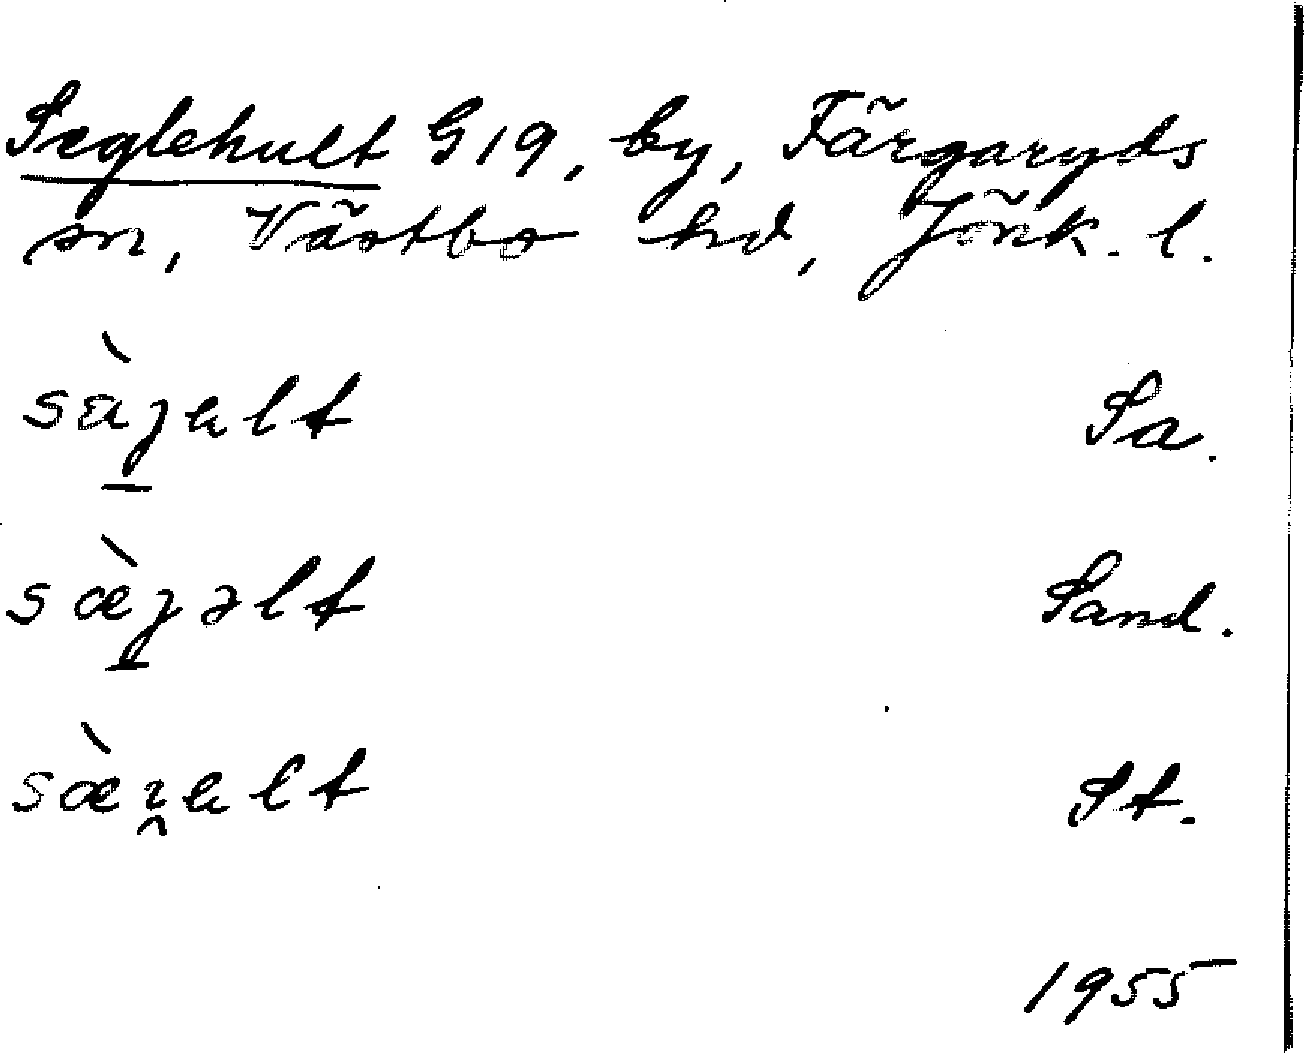 Seglehult G19, by, Färgaryds
sn, Västbo hd, Jönk. l.
sàȷɐlt Sa.
sæ̀ȷəlt Sand.
sæ̀ɿ̯ɐlt St.
1955